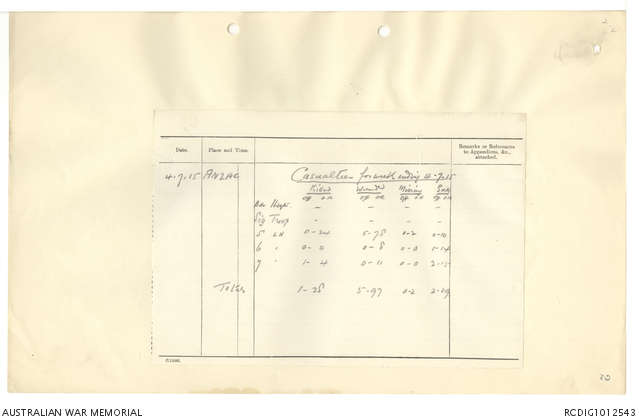 Date. Place and Time. Remarks or References to Appendices, &c., attached.
4.7.15 ANZAC Casualties for week ending 4-7-15
Killed Wounded Missing Sick
off OR off OR off OR off OR
Bde Hdqrs - - - -
Sig Troop - - - -
5 LH 0-24 5-78 0-2 0-10
6 " 0-0 0-8 0-0
7 " 1-4 0-11 0-0 2-15
Totals 1-28 5-97 0-2
AUSTRALIAN WAR MEMORIAL
RCDIG1012543